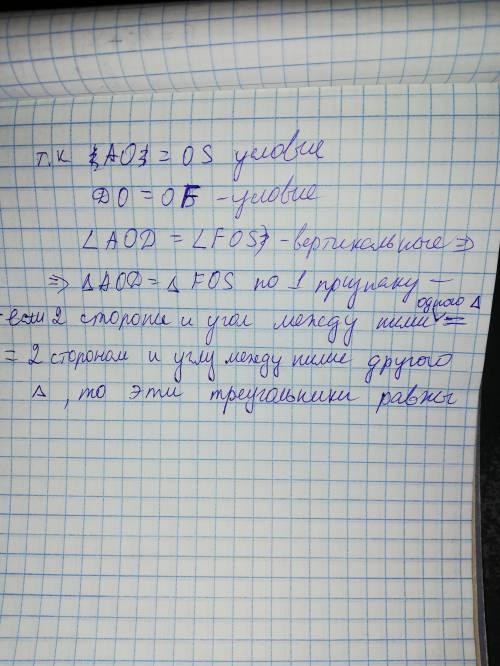 т.к AO = OS условие
DO = OF - условие
∠AOD = ∠FOS - вертикальные ⇒
⇒ △AOD = △FOS по 1 признаку -
одного △
- если 2 стороны и угол между ними =
= 2 сторонам и углу между ними другого
△, то эти треугольники равны